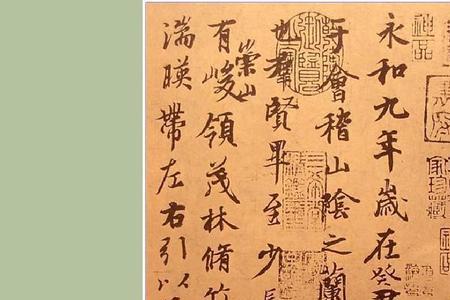 永和九年歲在癸
于會稽山陰之蘭
也羣賢畢至少
有崇山峻領茂林脩竹
湍暎帶左右引以